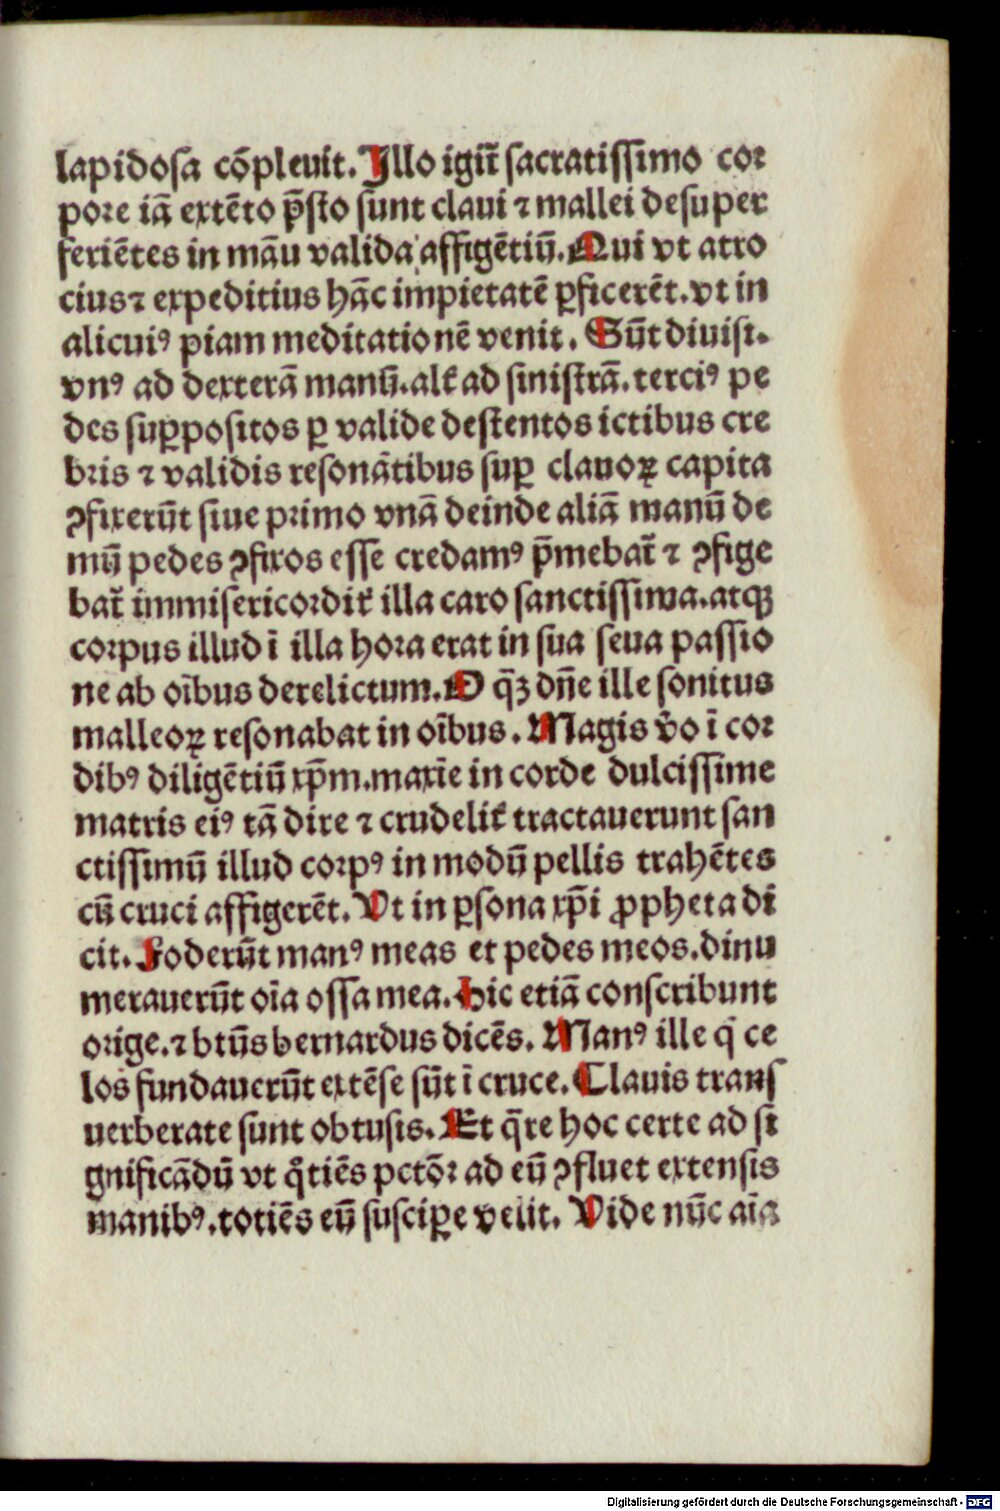 lapidosa cōpleuit. Illo igit̄ sacratissimo cor
pore iā extēto p̄sto sunt claui ⁊ mallei desuper
feriētes in māu valida affigētiū. Qui vt atro
cius ⁊ expeditius hāc impietatē ꝑficerēt. vt in
alicuiꝰ piam meditationē venit. Sūt diuisi.
vnꝰ ad dexterā manū. alt̄ ad sinistrā. terciꝰ pe
des suꝑpositos ꝑ valide destentos ictibus cre
bris ⁊ validis resonātibus suꝑ clauoꝝ capita
ꝯfixerūt siue primo vnā deinde aliā manū de
mū pedes ꝯfixos esse credamꝰ p̄mebat̄ ⁊ ꝯfige
bat̄ immisericordit̄ illa caro sanctissima. atqꝫ
corpus illud ī illa hora erat in sua seua passio
ne ab oībus derelictum. O q̄ꝫ dn̄e ille sonitus
malleoꝝ resonabat in oībus. Magis v̄o ī cor
dibꝰ diligētiū xp̄m. maxīe in corde dulcissime
matris eiꝰ tā dire ⁊ crudelit̄ tractauerunt san
ctissimū illud corpꝰ in modū pellis trahētes
cū cruci affigerēt. Vt in ꝑsona xp̄i ꝓpheta di
cit. Foderūt manꝰ meas et pedes meos. dinu
merauerūt oīa ossa mea. Hic etiā conscribunt
orige. ⁊ btūs bernardus dicēs. Manꝰ ille q̄ ce
los fundauerūt extēse sūt ī cruce. Clauis trans
uerberate sunt obtusis. Et q̄re hoc certe ad si
gnificādū vt qͦtiēs pctōꝛ ad eū ꝯfluet extensis
manibꝰ. totiēs eū susciꝑe velit. Vide nūc aīa
Digitalisierung gefördert durch die Deutsche Forschungsgemeinschaft - DFG